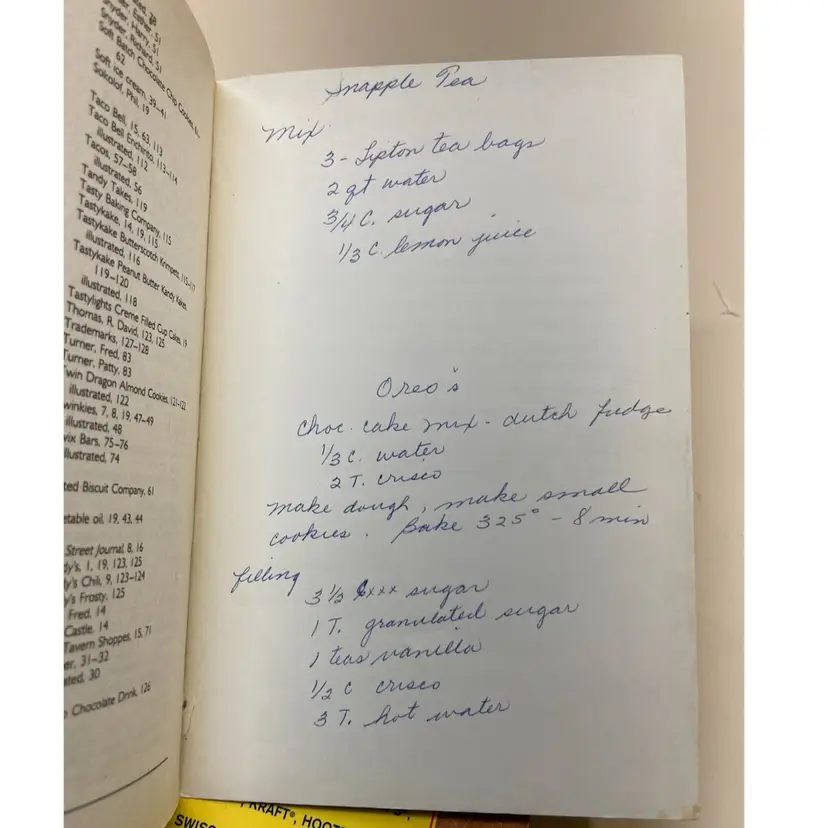 ated, 28
der, Esther, 51
nyder, Harry, 51
Snyder, Richard, 51
Soft Batch Chocolate Chip Cookies,
62
Soft ice cream, 39–41
Sokolof, Phil, 19
Taco Bell, 15, 63, 113
Taco Bell Enchirito, 113–114
illustrated, 112
Tacos, 57–58
illustrated, 56
Tandy Takes, 119
Tasty Baking Company, 115
Tastykake, 14, 19, 115
Tastykake Butterscotch Krimpets, 115–117
illustrated, 116
Tastykake Peanut Butter Kandy Kakes,
119–120
illustrated, 118
Tastylights Creme Filled Cup Cakes, 19
Thomas, R. David, 123, 125
Trademarks, 127–128
Turner, Fred, 83
Turner, Patty, 83
Twin Dragon Almond Cookies, 121–122
illustrated, 122
winkies, 7, 8, 19, 47–49
illustrated, 48
wix Bars, 75–76
llustrated, 74
ted Biscuit Company, 61
etable oil, 19, 43, 44
Street Journal, 8, 16
dy's, 1, 19, 123, 125
y's Chili, 9, 123–124
y's Frosty, 125
Fred, 14
Castle, 14
Tavern Shoppes, 15, 71
er, 31–32
ated, 30
Chocolate Drink, 126
Snapple Tea
Mix
3 - Lipton tea bags
2 qt water
3/4 C. sugar
1/3 C. lemon juice
Oreo's
Choc. cake mix - dutch fudge
1/3 C. water
2 T. crisco
Make dough, make small
cookies. Bake 325° - 8 min
filling
3 1/3 C xxx sugar
1 T. granulated sugar
1 teas vanilla
1/2 C crisco
3 T. hot water
, KRAFT®, HOOT
SWISS